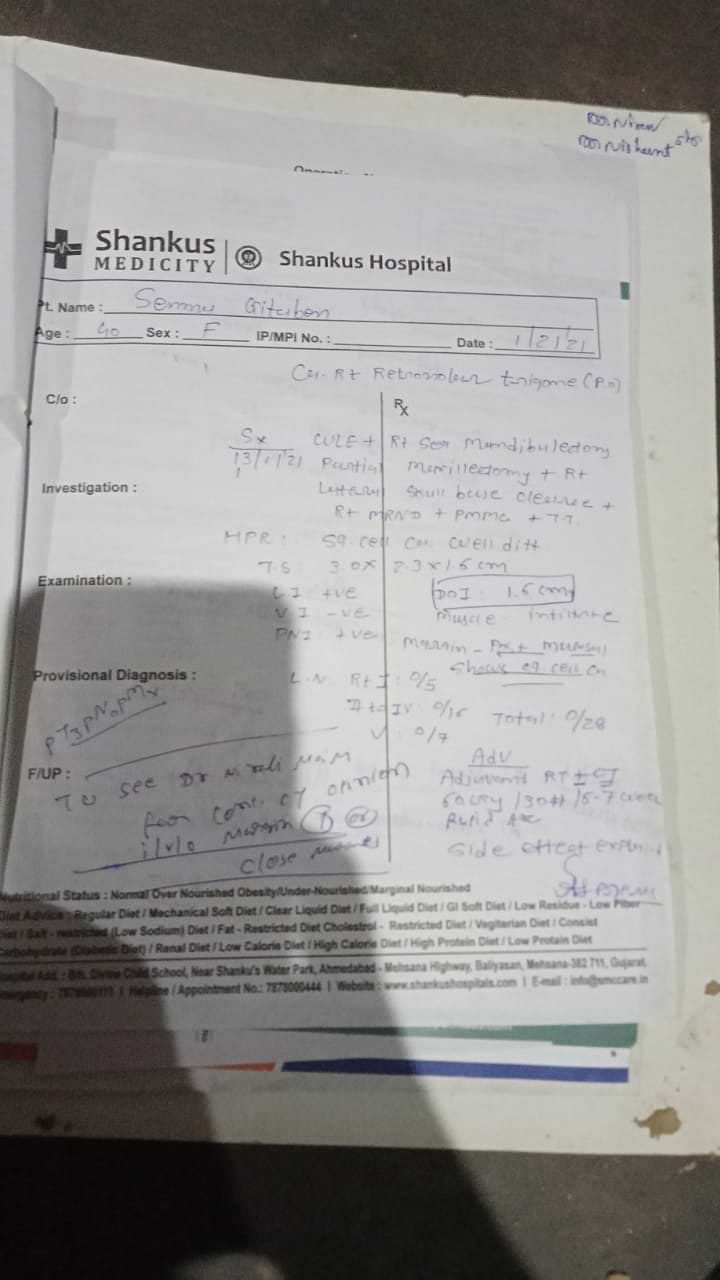 Shankus
MEDICITY
Shankus Hospital
Pt. Name : Gitaben
Age : 40 Sex : F IP/MPI No. : Date : 1/2/21
Ca. Rt Retromolar trigone (P.O)
C/o :
Rx
Sx CWLE + Rt Seg Mandibulectomy
13/1/21 Partial Maxillectomy + Rt
Investigation :
Lateral Skull base clearance +
Rt MRND + PMMC + TT
HPR : Sq. cell Ca. Well diff
T.S : 3.0 x 2.3 x 1.5 cm
Examination :
LI : +ve DOI : 1.5 cm
VI -ve Muscle
PNI : +ve Margin - mucosal
Shows sq. cell Ca
Provisional Diagnosis :
L.N. Rt I : 0/5
pT3pN0pMx
II to IV : 0/16 Total : 0/28
V : 0/7
F/UP :
To see Dr Mam Adv
for opinion Adjuvant RT ± CT
60 Gy / 30 # / 6-7 week
i/v/o margin
close Side effect
Nutritional Status : Normal Over Nourished Obesity/Under-Nourished/Marginal Nourished
Diet Advice : Regular Diet / Mechanical Soft Diet / Clear Liquid Diet / Full Liquid Diet / GI Soft Diet / Low Residue - Low Fiber
Diet / Salt - restricted (Low Sodium) Diet / Fat - Restricted Diet Cholestrol - Restricted Diet / Vegiterian Diet / Consist
Carbohydrate (Diabetic Diet) / Renal Diet / Low Calorie Diet / High Calorie Diet / High Protein Diet / Low Protain Diet
School, Near Shanku's Water Park, Ahmedabad - Mehsana Highway, Baliyasan, Mehsana-382 711, Gujarat.
Helpline / Appointment No.: 7878000444 | Website : www.shankushospitals.com | E-mail : info@smccare.in